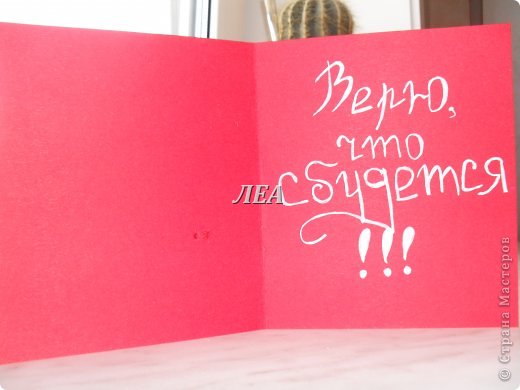 Верю,
что
сбудется
!!!
ЛЕА
© Страна Мастеров